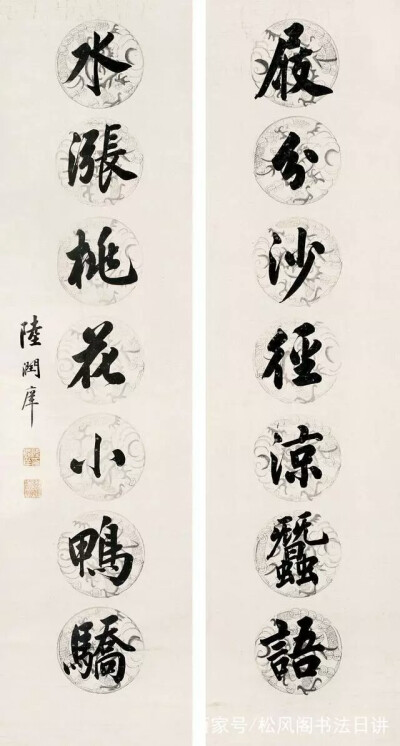 屐分沙徑涼蠶語
水漲桃花小鴨驕
陸潤庠
家号/松风阁书法日讲